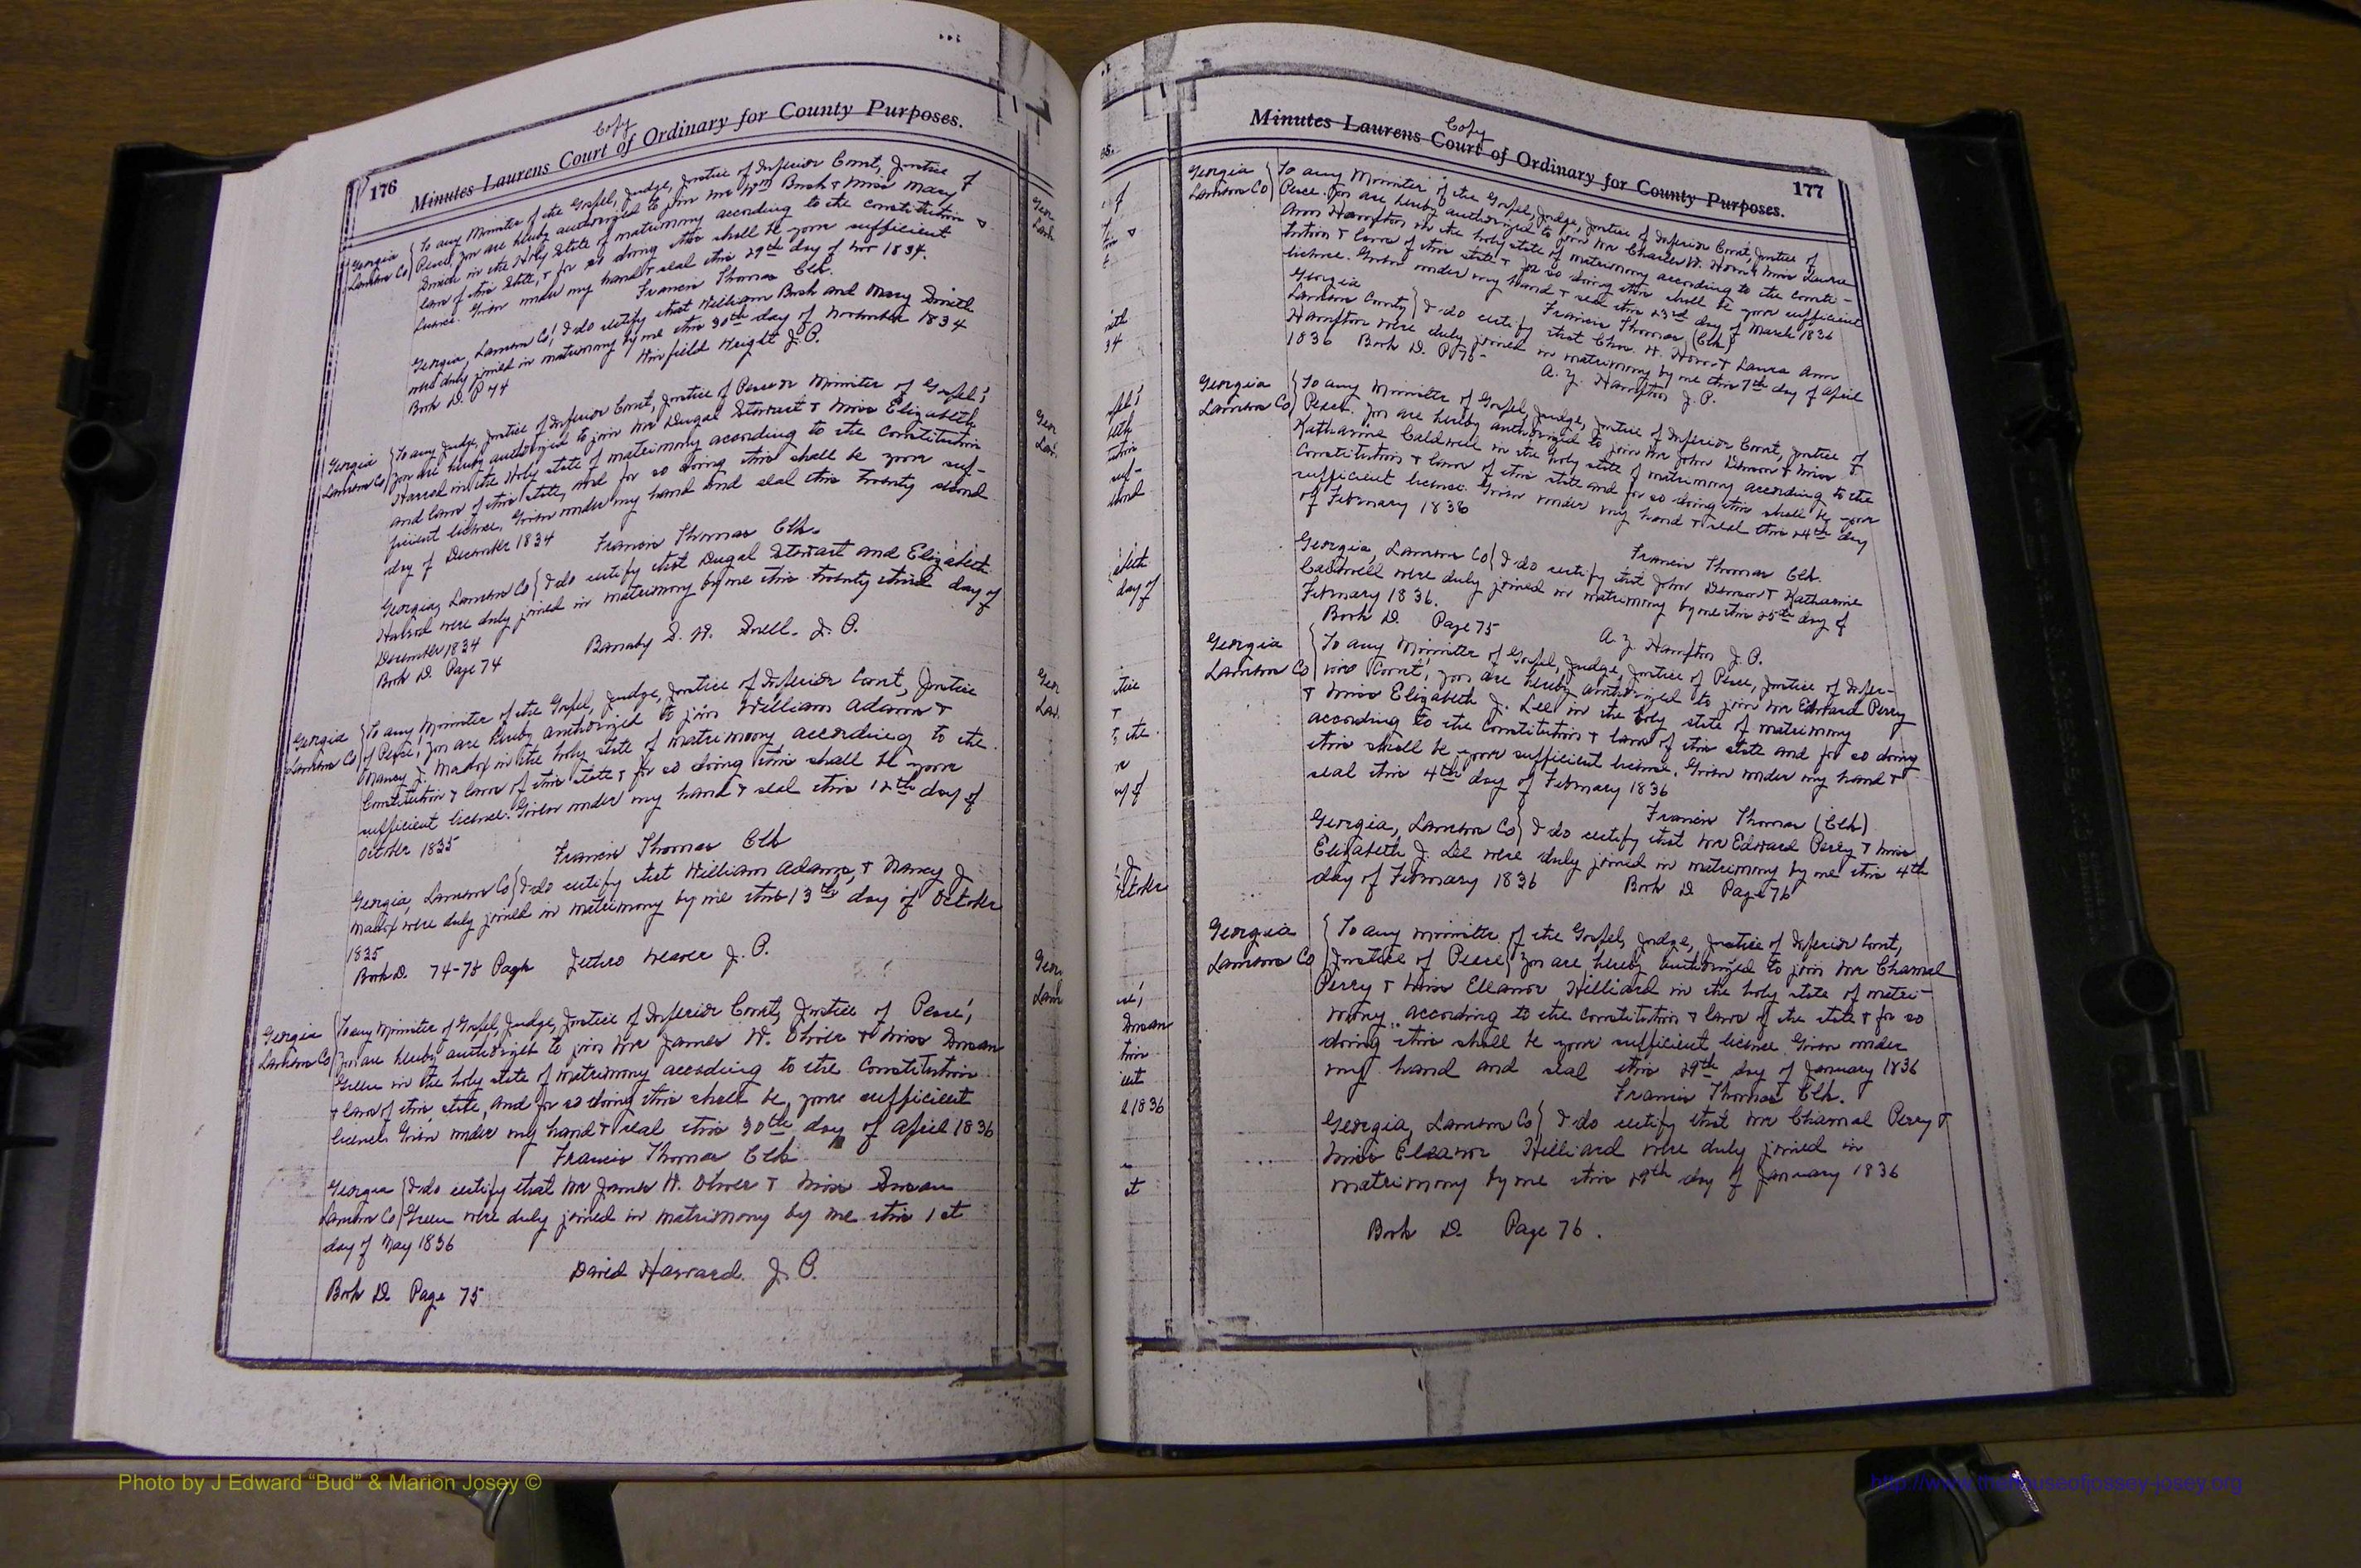 Copy
176 Minutes Laurens Court of Ordinary for County Purposes.
Georgia
Laurens Co
To any Minister of the Gospel, Judge, Justice of Inferior Court, Justice of
Peace, you are hereby authorized to join Mr Wm Bush & Miss Mary
Smith in the Holy State of matrimony according to the constitution &
law of this State, & for so doing this shall be your sufficient
license. Given under my hand & seal this 29th day of Nov 1834.
Francis Thomas Clk.
Georgia, Laurens Co } I do certify that William Bush and Mary Smith
were duly joined in matrimony by me this 30th day of November 1834
Winfield Wright J.P.
Book D. P 74
Georgia
Laurens Co
To any Judge, Justice of Inferior Court, Justice of Peace or Minister of Gospel;
you are hereby authorized to join Mr Dugal Stewart & Miss Elizabeth
Harrod in the Holy state of matrimony according to the Constitution
and laws of this state, and for so doing this shall be your suf-
ficient license, Given under my hand and seal this twenty second
day of December 1834 Francis Thomas Clk.
Georgia, Laurens Co } I do certify that Dugal Stewart and Elizabeth
Harrod were duly joined in matrimony by me this twenty third day of
December 1834
Barnaby S. W. Snell. J. P.
Book D. Page 74
Georgia
Laurens Co
To any Minister of the Gospel, Judge, Justice of Inferior Court, Justice
of Peace, you are hereby authorized to join William Adams &
Nancy J. Maddox in the holy state of matrimony according to the
Constitution & laws of this state & for so doing this shall be your
sufficient license. Given under my hand & seal this 12th day of
October 1835
Francis Thomas Clk
Georgia, Laurens Co } I do certify that William Adams, & Nancy J
were duly joined in matrimony by me this 13th day of October
1835
Book D. 74-75 Page Jethro Weaver J. P.
Georgia
Laurens Co
To any Minister of Gospel, Judge, Justice of Inferior Court, Justice of Peace,
you are hereby authorized to join Mr James W. Oliver & Miss Susan
Green in the holy state of matrimony according to the Constitution
& law of this state, and for so doing this shall be your sufficient
license. Given under my hand & seal this 30th day of April 1836
Francis Thomas Clk
Georgia
Laurens Co
I do certify that Mr James W. Oliver & Miss Susan
Green were duly joined in matrimony by me this 1st
day of May 1836
David Harrard. J. P.
Book D Page 75
Copy
Minutes Laurens Court of Ordinary for County Purposes. 177
Georgia
Laurens Co
To any Minister of the Gospel, Judge, Justice of Inferior Court, Justice of
Peace. You are hereby authorized to join Mr Charles W. & Miss Laura
Ann Hampton in the holy state of matrimony according to the consti-
tution & laws of this state & for so doing this shall be your sufficient
license. Given under my hand & seal this 23rd day of March 1836
Francis Thomas (Clk)
Georgia
Laurens County } I do certify that Chas. W. & Laura Ann
Hampton were duly joined in matrimony by me this 7th day of April
1836 Book D. P 75
A. Z. Hampton J. P.
Georgia
Laurens Co
To any Minister of Gospel, Judge, Justice of Inferior Court, Justice of
Peace. You are hereby authorized to join Mr John & Miss
Katharine Caldwell in the holy state of matrimony according to the
Constitution & laws of this state and for so doing this shall be your
sufficient license. Given under my hand & seal this 24th day
of February 1836
Francis Thomas Clk.
Georgia, Laurens Co } I do certify that John & Katharine
Caldwell were duly joined in matrimony by me this 25th day of
February 1836.
A Z. Hampton J. P.
Book D. Page 75
Georgia
Laurens Co
To any Minister of Gospel, Judge, Justice of Peace, Justice of Infer-
ior Court, you are hereby authorized to join Mr Edward Perry
& Miss Elizabeth J. Lee in the holy state of matrimony
according to the constitution & laws of this state and for so doing
this shall be your sufficient license. Given under my hand &
seal this 4th day of February 1836
Francis Thomas (Clk)
Georgia, Laurens Co } I do certify that Mr Edward Perry & Miss
Elizabeth J. Lee were duly joined in matrimony by me this 4th
day of February 1836 Book D Page 76
Georgia
Laurens Co
To any Minister of the Gospel, Judge, Justice of Inferior Court,
Justice of Peace } You are hereby authorized to join Mr Charnal
Perry & Miss Eleanor Hilliard in the holy state of matri-
mony according to the constitution & laws of the state & for so
doing this shall be your sufficient license. Given under
my hand and seal this 29th day of January 1836
Francis Thomas Clk.
Georgia, Laurens Co } I do certify that Mr Charnal Perry &
Miss Eleanor Hilliard were duly joined in
matrimony by me this 29th day of January 1836
Book D. Page 76.
Photo by J Edward “Bud” & Marion Josey ©
http://www.thehouseofjossey-josey.org